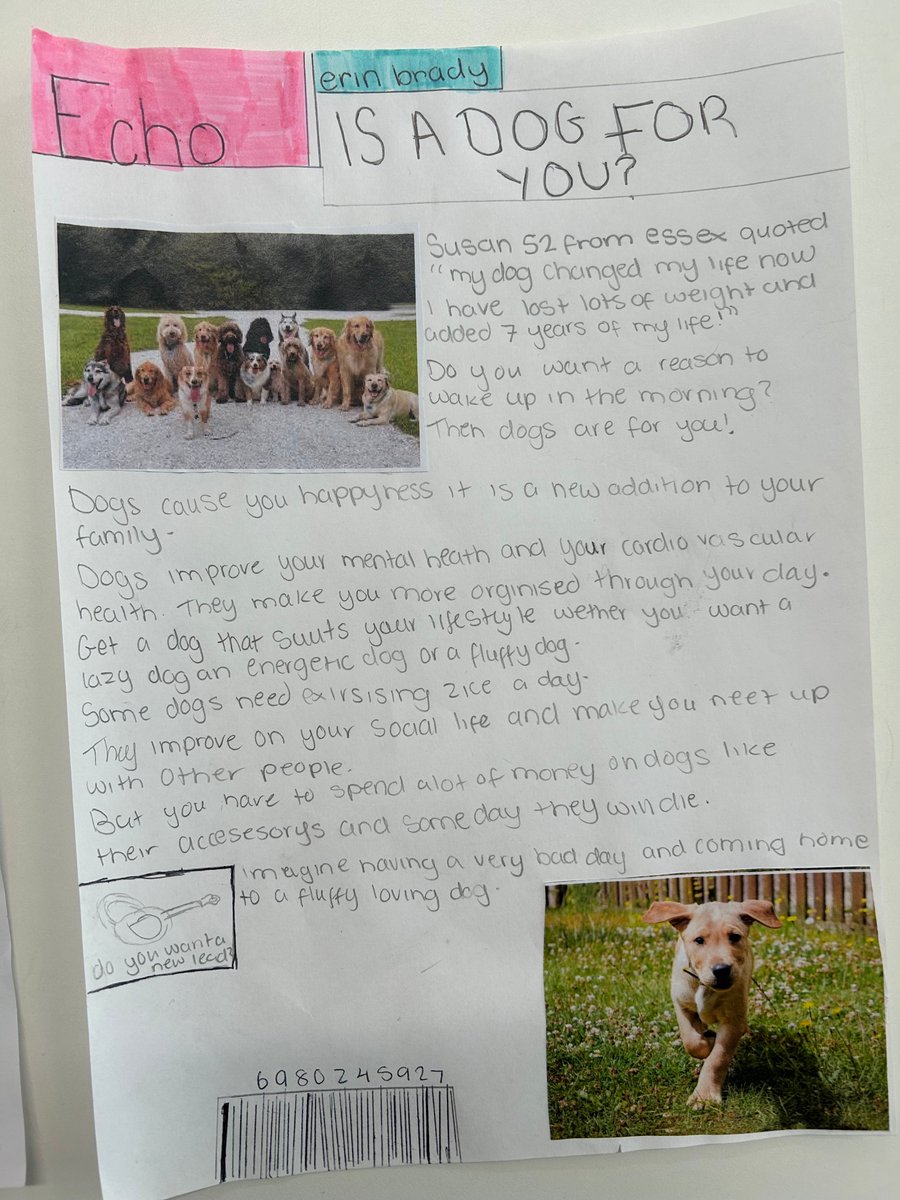 Echo
erin brady
IS A DOG FOR
YOU?
Susan 52 from essex quoted
"my dog changed my life now
I have lost lots of weight and
added 7 years of my life!"
Do you want a reason to
wake up in the morning?
Then dogs are for you!
Dogs cause you happyness it is a new addition to your
family.
Dogs improve your mental heath and your cardio vascular
health. They make you more orginised through your day.
Get a dog that suuts your lifestyle wether you want a
lazy dog an energetic dog or a fluffy dog.
Some dogs need exirsising 2ice a day.
They improve on your social life and make you meet up
with other people.
But you have to spend alot of money on dogs like
their accesesorys and someday they will die.
imagine having a very bad day and coming home
to a fluffy loving dog.
do you want a
new lead?
6980245927